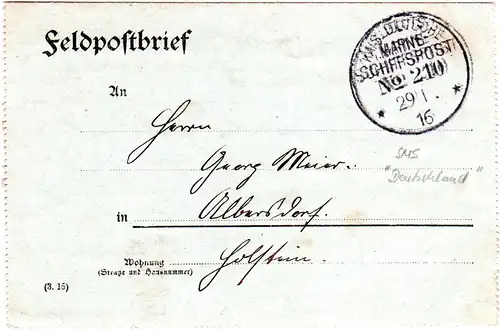 Feldpostbrief
KAIS. DEUTSCHE
MARINE-
SCHIFFSPOST
No 210
* 29 1. *
16
An
Herrn
Georg Meier.
SMS
"Deutschland"
in Albersdorf.
Wohnung Holstein.
(Straße und Hausnummer)
(3. 15)